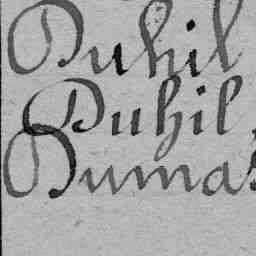 Duhil
Duhil,
Dumas